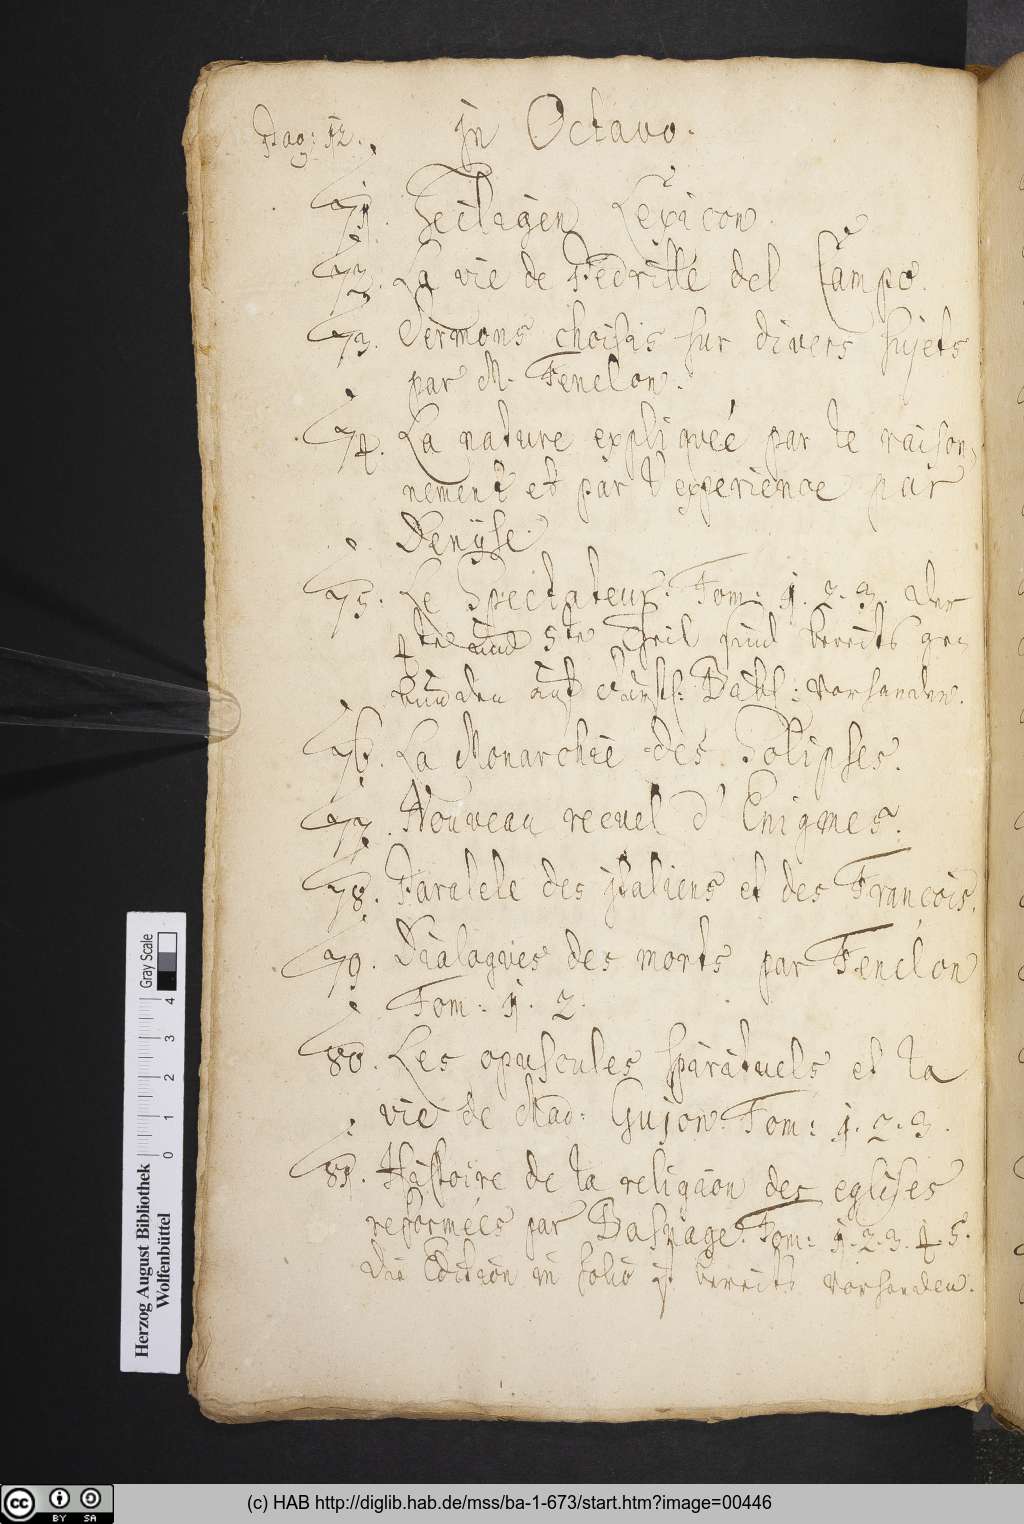 Pag: 12. in Octavo.
71. Heiligen Lexicon.
72. La vie de Pedrille del Campo.
73. Sermons choisis sur divers sujets
par M. Fenelon.
74. La nature expliquée par le raison,
nement et par l'experience par
Denyse.
75. Le Spectateur. Tom: 1. 2. 3. der
4te und 5te Theil sind bereits ge,
bunden auf Fürstl: Bibl: vorhanden.
76. La Monarchie des Solipses.
77. Nouveau recuel d'Enigmes.
78. Paralele des italiens et des François.
79. Dialogues des morts par Fenelon
Tom: 1. 2.
80. Les opuscules spirituels et la
vie de Mad: Gujon. Tom: 1. 2. 3.
81. Histoire de la religion des eglises
reformées par Basnage. Tom: 1. 2. 3. 4. 5.
die Edition in folio ist bereits vorhanden.
Herzog August Bibliothek
Wolfenbüttel
0 1 2 3 4 Gray Scale
cc BY SA
(c) HAB http://diglib.hab.de/mss/ba-1-673/start.htm?image=00446